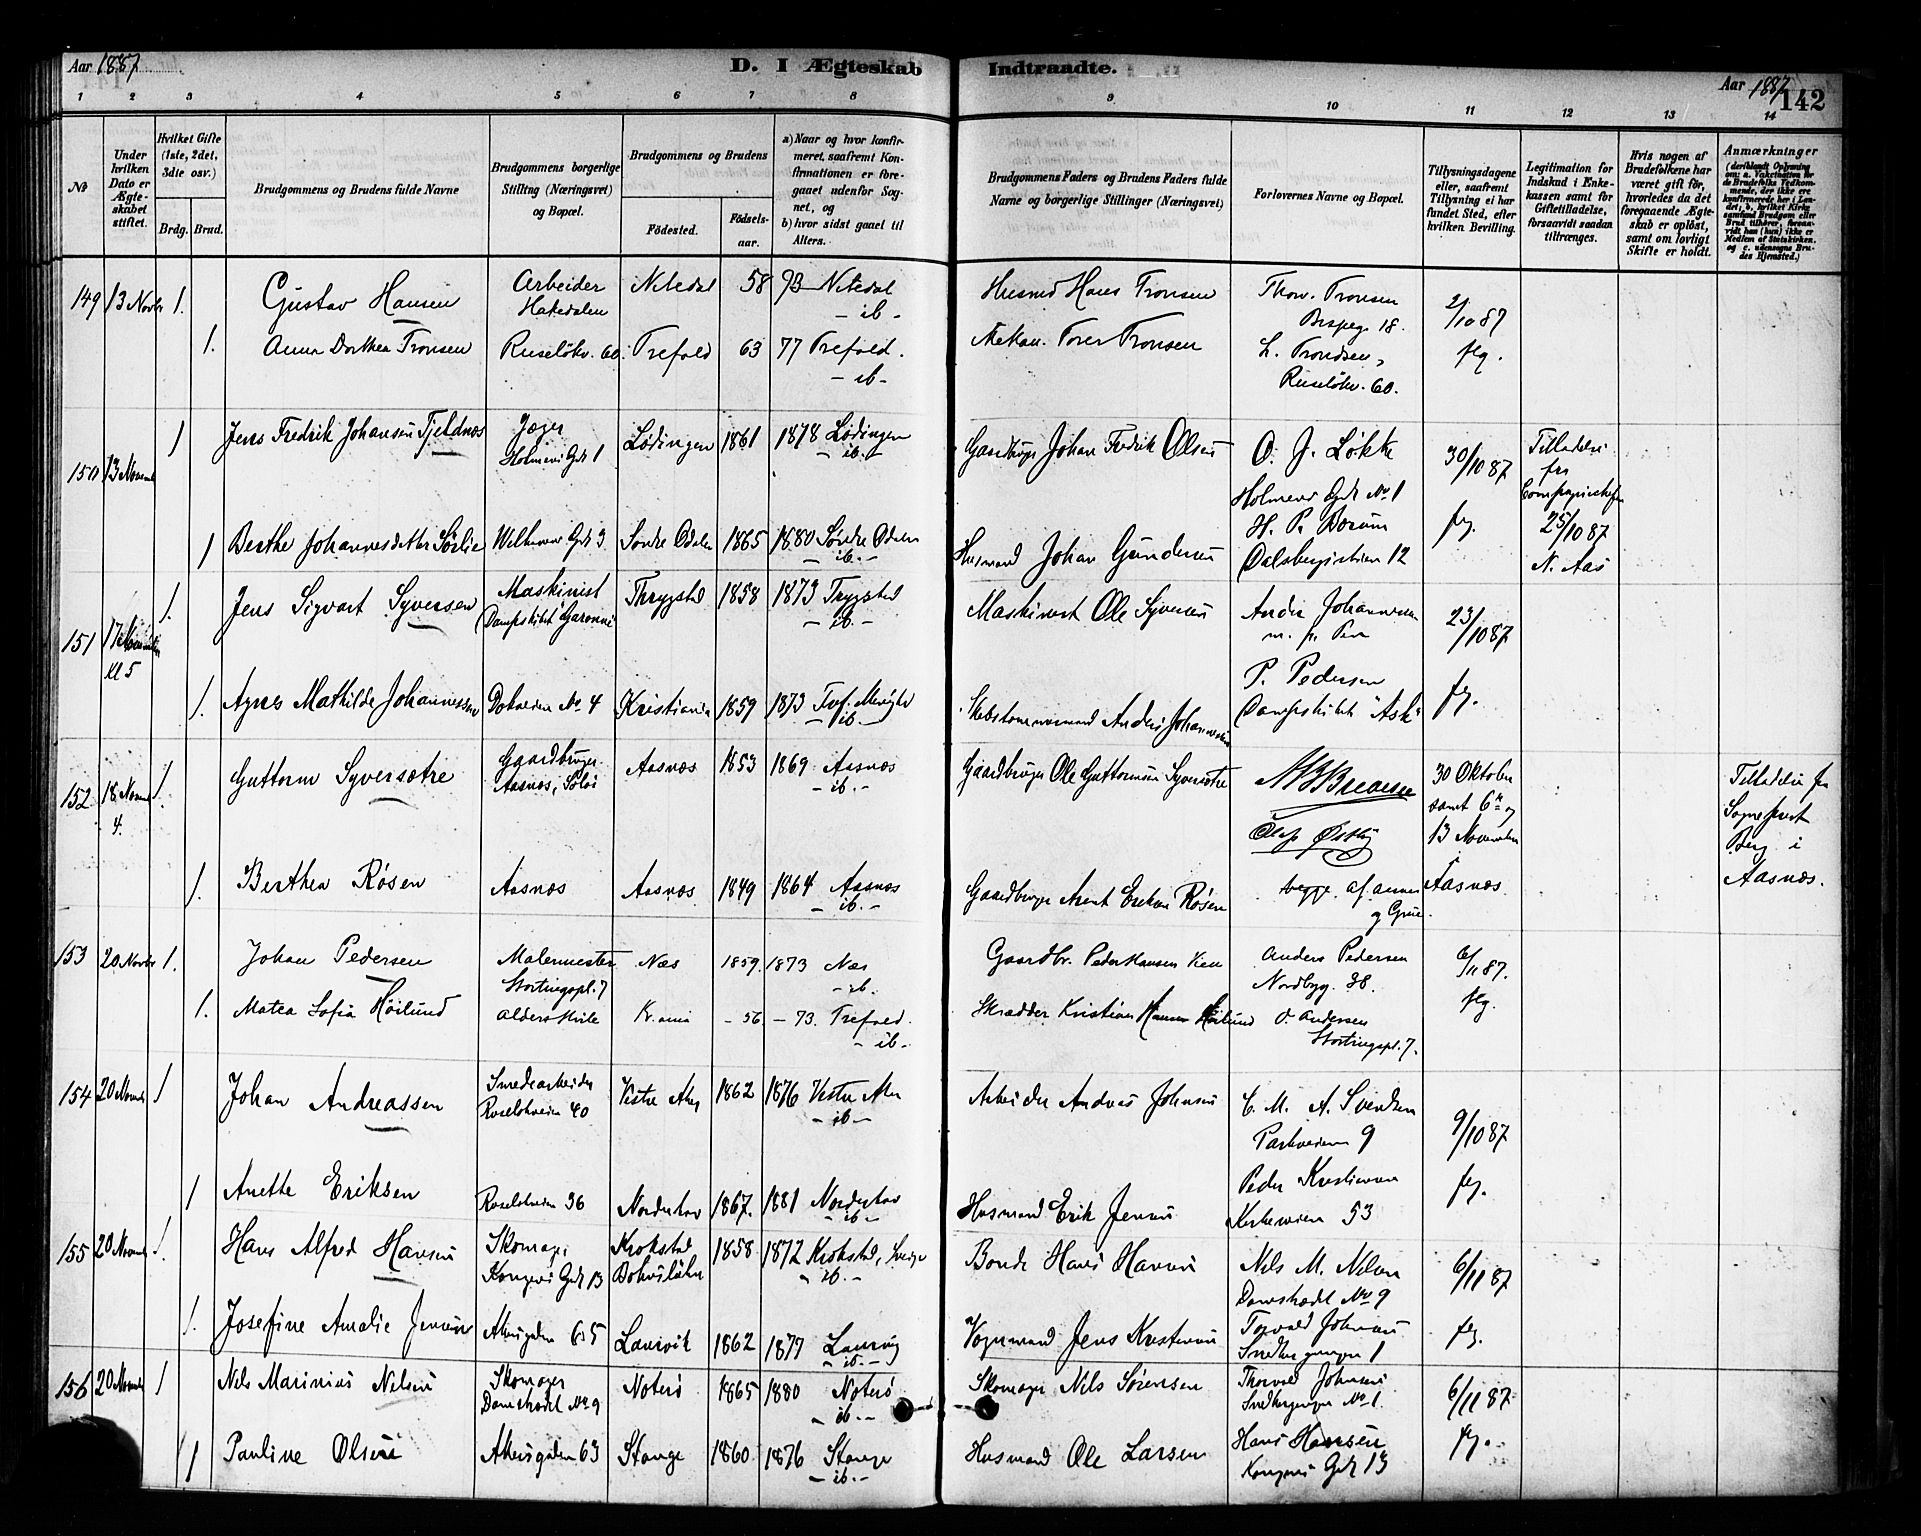 Aar 1887
D. I Ægteskab
Indtraadte.
Aar 1887
142
1 2 3 4 5 6 7 8 9 10 11 12 13 14
№
Under hvilken Dato er Ægteskabet stiftet.
Hvilket Gifte (1ste, 2det, 3die osv.)
Brdg. Brud.
Brudgommens og Brudens fulde Navne
Brudgommens borgerlige Stilling (Næringsvei) og Bopæl.
Brudgommens og Brudens
Fødested.
Fødselsaar.
a) Naar og hvor konfirmeret, saafremt Konfirmationen er foregaaet udenfor Sognet, og
b) hvor sidst gaaet til Alters.
Brudgommens Faders og Brudens Faders fulde Navne og borgerlige Stillinger (Næringsvei)
Forlovernes Navne og Bopæl.
Tillysningsdagene eller, saafremt Tillysning ei har fundet Sted, efter hvilken Bevilling.
Legitimation for Indskud i Enkekassen samt for Giftetilladelse, forsaavidt saadan tiltrænges.
Hvis nogen af Brudefolkene har været gift før, hvorledes da det foregaaende Ægteskab er opløst, samt om lovligt Skifte er holdt.
Anmærkninger
149 13 Novbr 1. Gustav Hansen Arbeider Nitedal 58 73 Nitedal Husmd Hans Tronsen Thorv. Tronsen 2/10 87
Hakedalen - ib - 18.
1. Anna Dorthea Tronsen Ruseløkv. 60. Trefold 63 77 Trefold. Mekan. Tores Tronsen L. Trondsen, flg.
- ib - Ruseløkv. 60.
150 13 Novemb 1 Jens Fredrik Johansen Tjeldnæs Jæger Lødingen 1861 1878 Lødingen Gaardbruger Johan Fredrik Olsen O. J. Løkke 30/10 87 Tilladelse
Holmens Gd 1 - ib. - Holmens Gd No 1 fra
1 Berthe Johannesdatter Sørlie Wilhelms Gd 3 Søndre Odalen 1865 1880 Søndre Odalen Husmand Johan Gundersen H. P. Borum flg. 25/10 87
- ib. - Dalsbergstien 12 N. Aas
151 17 Novemb 1. Jens Sigvart Syversen Maskinist Thrygstad 1858 1873 Trygstad Maskinist Ole Syversen 23/10 87
kl 5 Dampskibet Garonne - ib. -
1. Agnes Mathilde Johannessen Dokveien No 4 Kristiania 1859 1873 Tref. Menighed Anders Johannessen P. Pedersen flg.
- ib. - Dampskibet "Ask"
152 18 Novemb 1. Guttorm Syversætre Gaardbruger Aasnæs 1853 1869 Aasnæs Gaardbruger Ole Guttormsen Syversætre 30 Oktober Tilladelse fra
4. Aasnæs, Solør - ib. - samt 6te og Sogneprest
Olaf Østby 13 November Berg i
1. Berthea Røsen Aasnæs Aasnæs 1849 1864 Aasnæs Gaardbruger Arent Røsen begge af i Aasnæs. Aasnæs.
- ib. - og Grue.
153 20 Novbr 1. Johan Pedersen Malermester Næs 1859. 1873 Næs Gaardbr. Peder Hansen Anders Pedersen 6/11 87.
Stortingspl. 7 - ib. Nordbyg. 38.
1. Matea Sofia Höilund Kr.ania - 56. - 73. Trefold. Skrædder Kristian Hansen Höilund O. Andersen flg.
- ib. - Stortingspl. 7.
154 20 Novemb 1 Johan Andreassen Smedearbeider Vestre Aker 1862 1876 Vestre Aker Arbeider Andreas Johnsen C. M. A. Svendsen 9/10 87
Ruseløkveien 40 - ib - Parkveien 9
1 Anette Eriksen Ruseløkveien 36 Nordrehov 1867. 1881 Nordrehov Husmand Erik Jensen Peder Kristiansen flg.
- ib - Kirkeveien 53
155 20 Novemb 1. Hans Alfred Hansen Skomager Krokstad 1858 1872 Krokstad, Sverige Bonde Hans Hansen Nils M. Nilsen 6/11 87
Kongens Gd 13 Bohuslähn - ib. - Damstrædet No 9
1. Josefine Amalie Jensen Akersgaden 65 Laurvik 1862 1877 Laurvig Vognmand Jens Kristensen Torvald Johnsen flg.
- ib. - Snedkergangen 1
156 20 Novemb 1 Nils Marinius Nilsen Skomager Noterø 1865 1880 Noterø Skomager Nils Sørensen Thorvald Johnsen 6/11 87
Damstrædet No 9 - ib. - Snedkergangen No 1.
1 Pauline Olsen Akersgaden 63 Stange 1860 1876 Stange Husmand Ole Larsen Hans Hansen flg.
- ib. - Kongens Gd 13